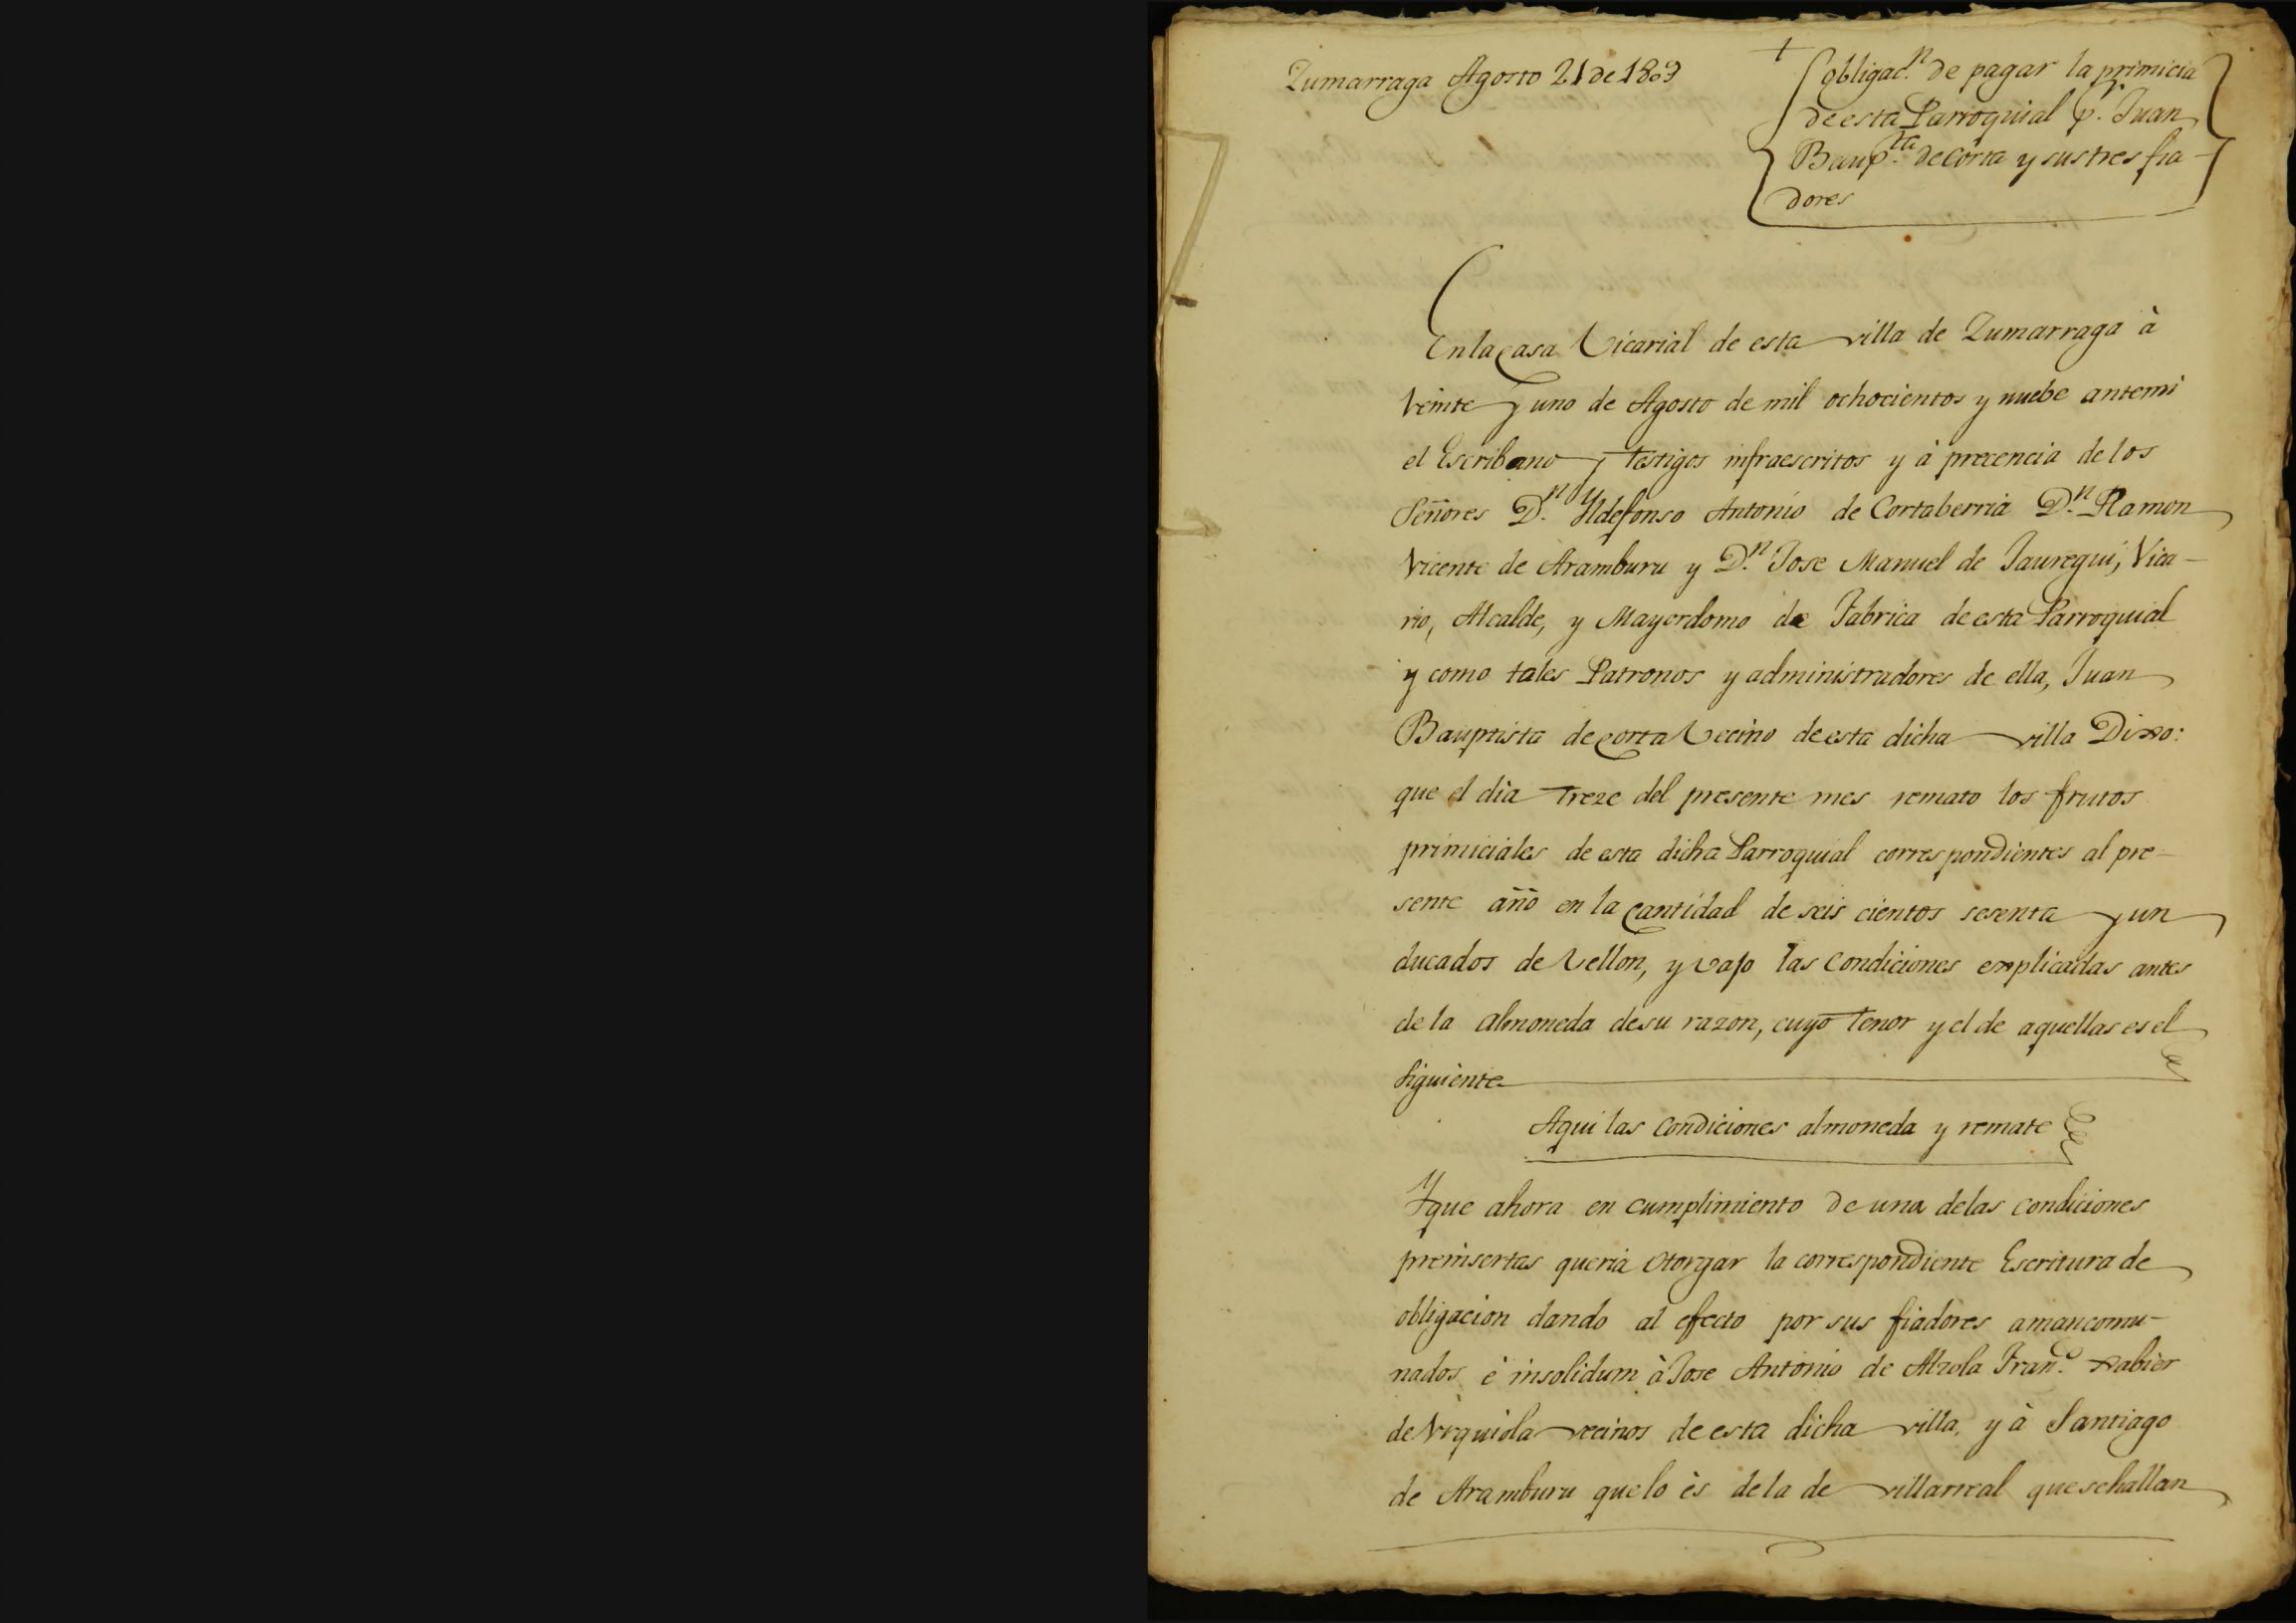 Zumarraga Agosto 21 de 1809
+
obligac.n de pagar la primicia
de esta Parroquial p.r Juan
Baup.ta de Corta y sus tres fia-
dores
En la Casa Vicarial de esta villa de Zumarraga à
veinte y uno de Agosto de mil ochocientos y nuebe antemi
el Escribano y testigos infraescritos y à precencia de los
Señores D.n Yldefonso Antonio de Cortaberria D.n Ramon
Vicente de Aramburu y D.n Jose Manuel de Jauregui, Vica-
rio, Alcalde, y Mayordomo de Fabrica de esta Parroquial
y como tales Patronos y administradores de ella, Juan
Bauptista de Corta Vecino de esta dicha villa Dixo:
que el dia treze del presente mes remato los frutos
primiciales de esta dicha Parroquial correspondientes al pre-
sente año en la Cantidad de seis cientos sesenta y un
ducados de Vellon, y vajo las Condiciones explicadas antes
de la almoneda de su razon, cuyo tenor y el de aquellas es el
siguiente
Aqui las Condiciones almoneda y remate
Y que ahora en cumplimiento de una de las condiciones
preinsertas queria otorgar la correspondiente Escritura de
obligacion dando al efecto por sus fiadores amancomu-
nados è insolidum à Jose Antonio de Alzola Fran.co Xabier
de Vrquiola vecinos de esta dicha villa, y à Santiago
de Aramburu que lo ès de la de villarreal que se hallan